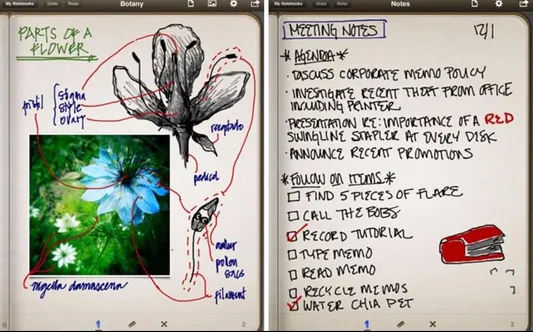 My Notebooks
Botany
PARTS OF A
FLOWER
pistil
stigma
style
ovary
receptacle
peduncle
anther
pollen
sacs
filament
nigella damascena
1
2
My Notebooks
Notes
MEETING NOTES
12/1
* AGENDA *
· DISCUSS CORPORATE MEMO POLICY
· INVESTIGATE RECENT THEFT FROM OFFICE
INCLUDING PRINTER
· PRESENTATION RE: IMPORTANCE OF A RED
SWINGLINE STAPLER AT EVERY DESK
· ANNOUNCE RECENT PROMOTIONS
* FOLLOW ON ITEMS *
FIND 5 PIECES OF FLARE
CALL THE BOBS
RECORD TUTORIAL
TYPE MEMO
READ MEMO
RECYCLE MEMOS
WATER CHIA PET
1
2